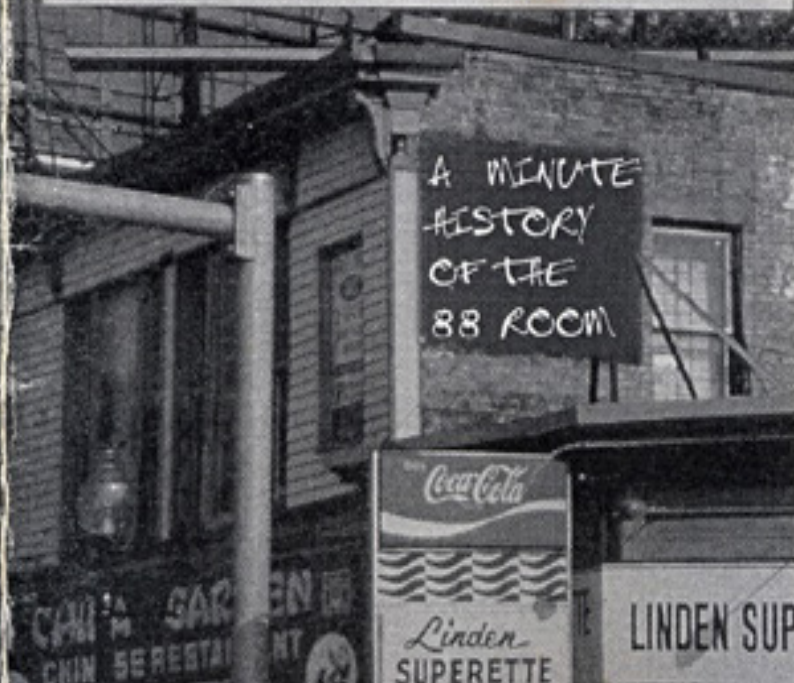 A MINUTE
HISTORY
OF THE
88 ROOM
Coca-Cola
Linden
SUPERETTE
LINDEN SUP